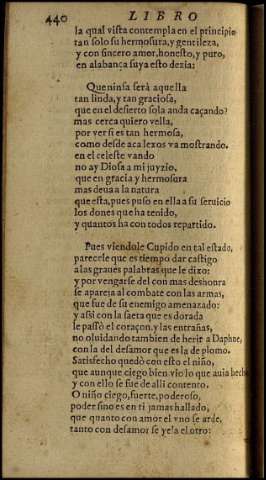 440 LIBRO
la qual vista contempla en el principio
tan solo su hermosura, y gentileza,
y con sincero amor, honesto, y puro,
en alabança suya esto dezia:
Que ninfa serà aquella
tan linda, y tan graciosa,
que en el desierto sola anda caçando?
mas cerca quiero vella,
por ver si es tan hermosa,
como desde aca lexos va mostrando.
en el celeste vando
no ay Diosa a mi juyzio,
que en gracia y hermosura
mas deua a la natura
que esta, pues puso en ella a su seruicio
los dones que ha tenido,
y quantos ha con todos repartido.
Pues viendole Cupido en tal estado,
parecele que es tiempo dar castigo
a las graues palabras que le dixo:
y por vengarse del con mas deshonra
se apareja al combate con las armas,
que fue de su enemigo amenazado:
y assi con la saeta que es dorada
le passò el coraçon, y las entrañas,
no oluidando tambien de herir a Daphne,
con la del desamor que es la de plomo.
Satisfecho quedò con esto el niño,
que aunque ciego bien vio lo que auia hecho
y con ello se fue de alli contento.
O niño ciego, fuerte, poderoso,
poder sino es en ti jamas hallado,
que quanto con amor el vno se arde,
tanto con desamor se yela el otro: